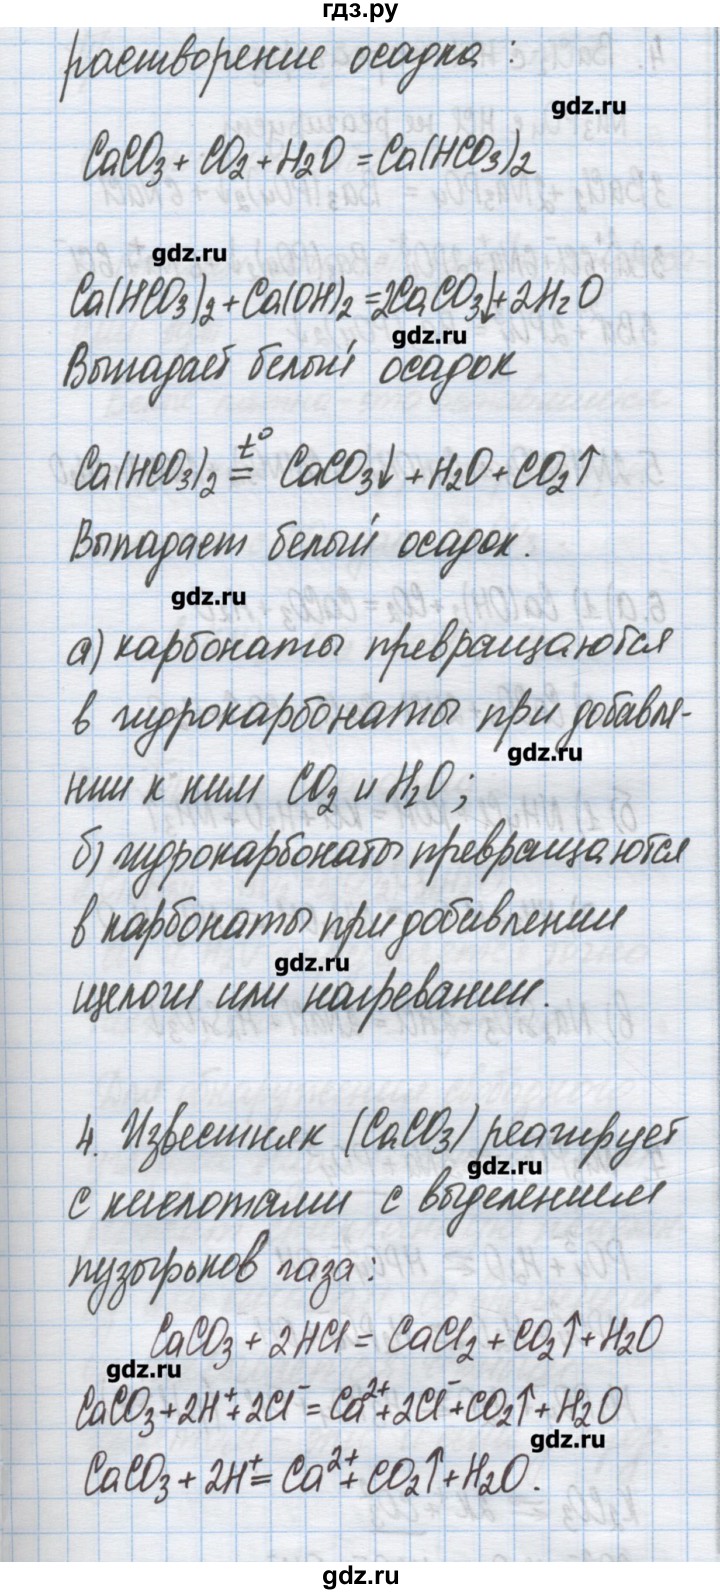 гдз.ру
растворение осадка:
gdz.ru
CaCO3 + CO2 + H2O = Ca(HCO3)2
gdz.ru
Ca(HCO3)2 + Ca(OH)2 = 2CaCO3↓ + 2H2O
gdz.ru
Выпадает белый осадок
Ca(HCO3)2 =t° CaCO3↓ + H2O + CO2↑
Выпадает белый осадок.
gdz.ru
а) карбонаты превращаются
в гидрокарбонаты при добавле-
gdz.ru
нии к ним CO2 и H2O;
б) гидрокарбонаты превращаются
в карбонаты при добавлении
gdz.ru
щелочи или нагревании.
4. Известняк (CaCO3) реагирует
gdz.ru
с кислотами с выделением
пузырьков газа:
CaCO3 + 2HCl = CaCl2 + CO2↑ + H2O
gdz.ru
CaCO3 + 2H+ + 2Cl- = Ca2+ + 2Cl- + CO2↑ + H2O
gdz.ru
CaCO3 + 2H+ = Ca2+ + CO2↑ + H2O.
gdz.ru